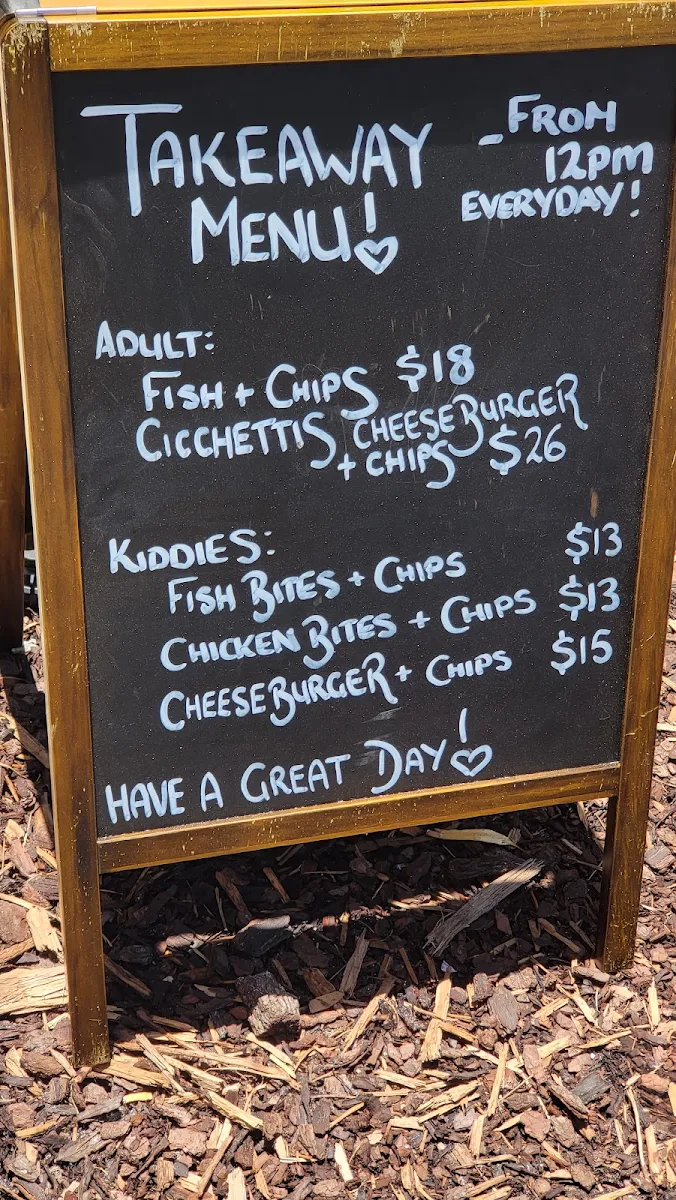 TAKEAWAY
MENU!
- FROM
12PM
EVERYDAY!
ADULT:
FISH + CHIPS $18
CICCHETTIS CHEESEBURGER
+ CHIPS $26
KIDDIES:
FISH BITES + CHIPS $13
CHICKEN BITES + CHIPS $13
CHEESEBURGER + CHIPS $15
HAVE A GREAT DAY!